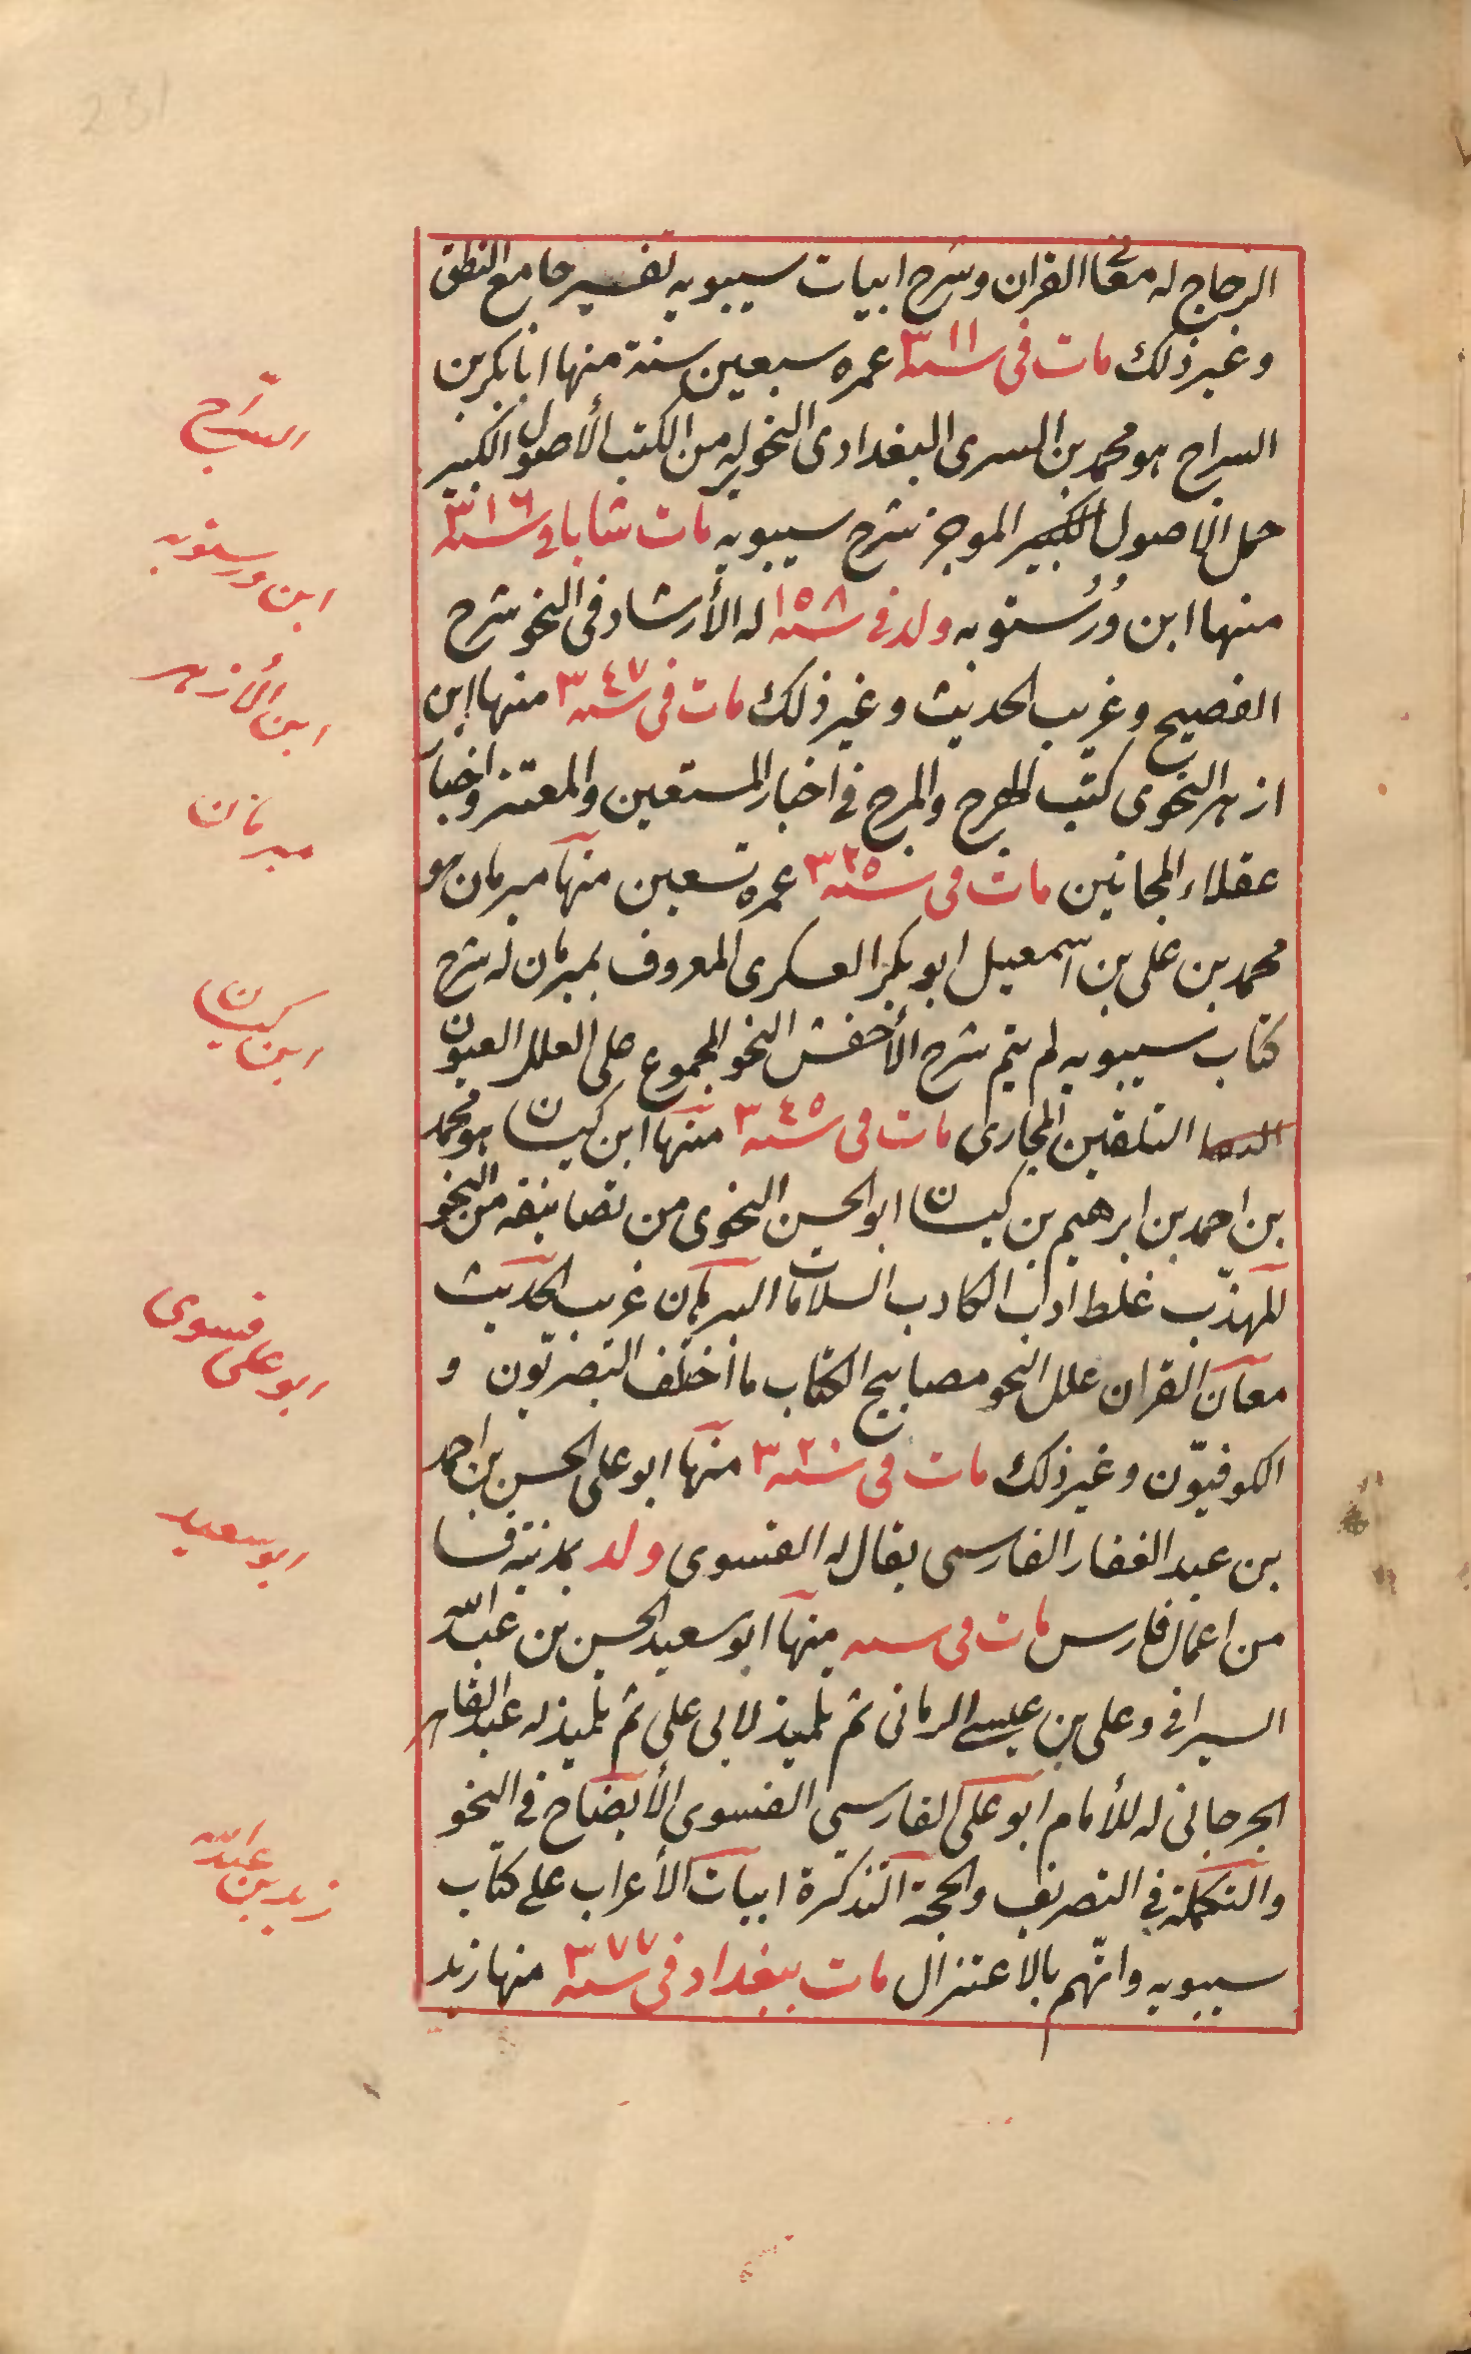 الزجاج له معانى القران وشرح ابيات سيبويه تفسير جامع النطق
وغير ذلك مات فى سنه ٣١١ عمره سبعين سنة منها ابا بكر بن
السراج هو محمد بن السرى البغدادى النحو له من الكتب الأصول الكبير
جمل الاصول الكبير الموجز شرح سيبويه مات شابا فى سنه ٣١٦
منها ابن دُرُستويه ولد فى سنه ١٥٨ له الأرشاد فى النحو شرح
الفصيح وغريب الحديث وغير ذلك مات فى سنه ٣٤٧ منها ابن
ازهر النحوى كتب الهرج والمرج فى اخبار المستعين والمعتز واخبار
عقلاء المجانين مات فى سنه ٣٢٥ عمره تسعين منها مبرمان هو
محمد بن على بن اسمعيل ابو بكر العسكرى المعروف بمبرمان له شرح
كتاب سيبويه لم يتم شرح الأخفش النحو المجموع على العلل العيون
التلقين المجارى مات فى سنه ٣٤٥ منها ابن كيسان هو محمد
بن احمد بن ابرهيم بن كيسان ابو الحسن النحوى من تصانيفه من النحو
المهذّب غلط ادب الكادب السلامات البرهان غريب الحديث
معانى القران علل النحو مصابيح الكتاب ما اختلف البصريّون و
الكوفيّون وغير ذلك مات فى سنه ٣٢٠ منها ابو على الحسن بن احمد
بن عبد الغفار الفارسى يقال له الفسوى ولد بمدينة فسا
من اعمال فارس مات فى سنه منها ابو سعيد الحسن بن عبد الله
السيرافى وعلى بن عيسى الرمانى ثم تلميذ لابى على ثم تلميذ له عبد القاهر
الجرجانى له للأمام ابو على الفارسى الفسوى الأيضاح فى النحو
والتكملة فى التصريف والحجة التذكرة ابيات الأعراب على كتاب
سيبويه واتّهم بالاعتزال مات ببغداد فى سنه ٣٧٧ منها زيد
السرّاج
ابن درستويه
ابن الأزهر
مبرمان
ابن كيسان
ابو على فسوى
ابو سعيد
زيد بن عبد الله
231